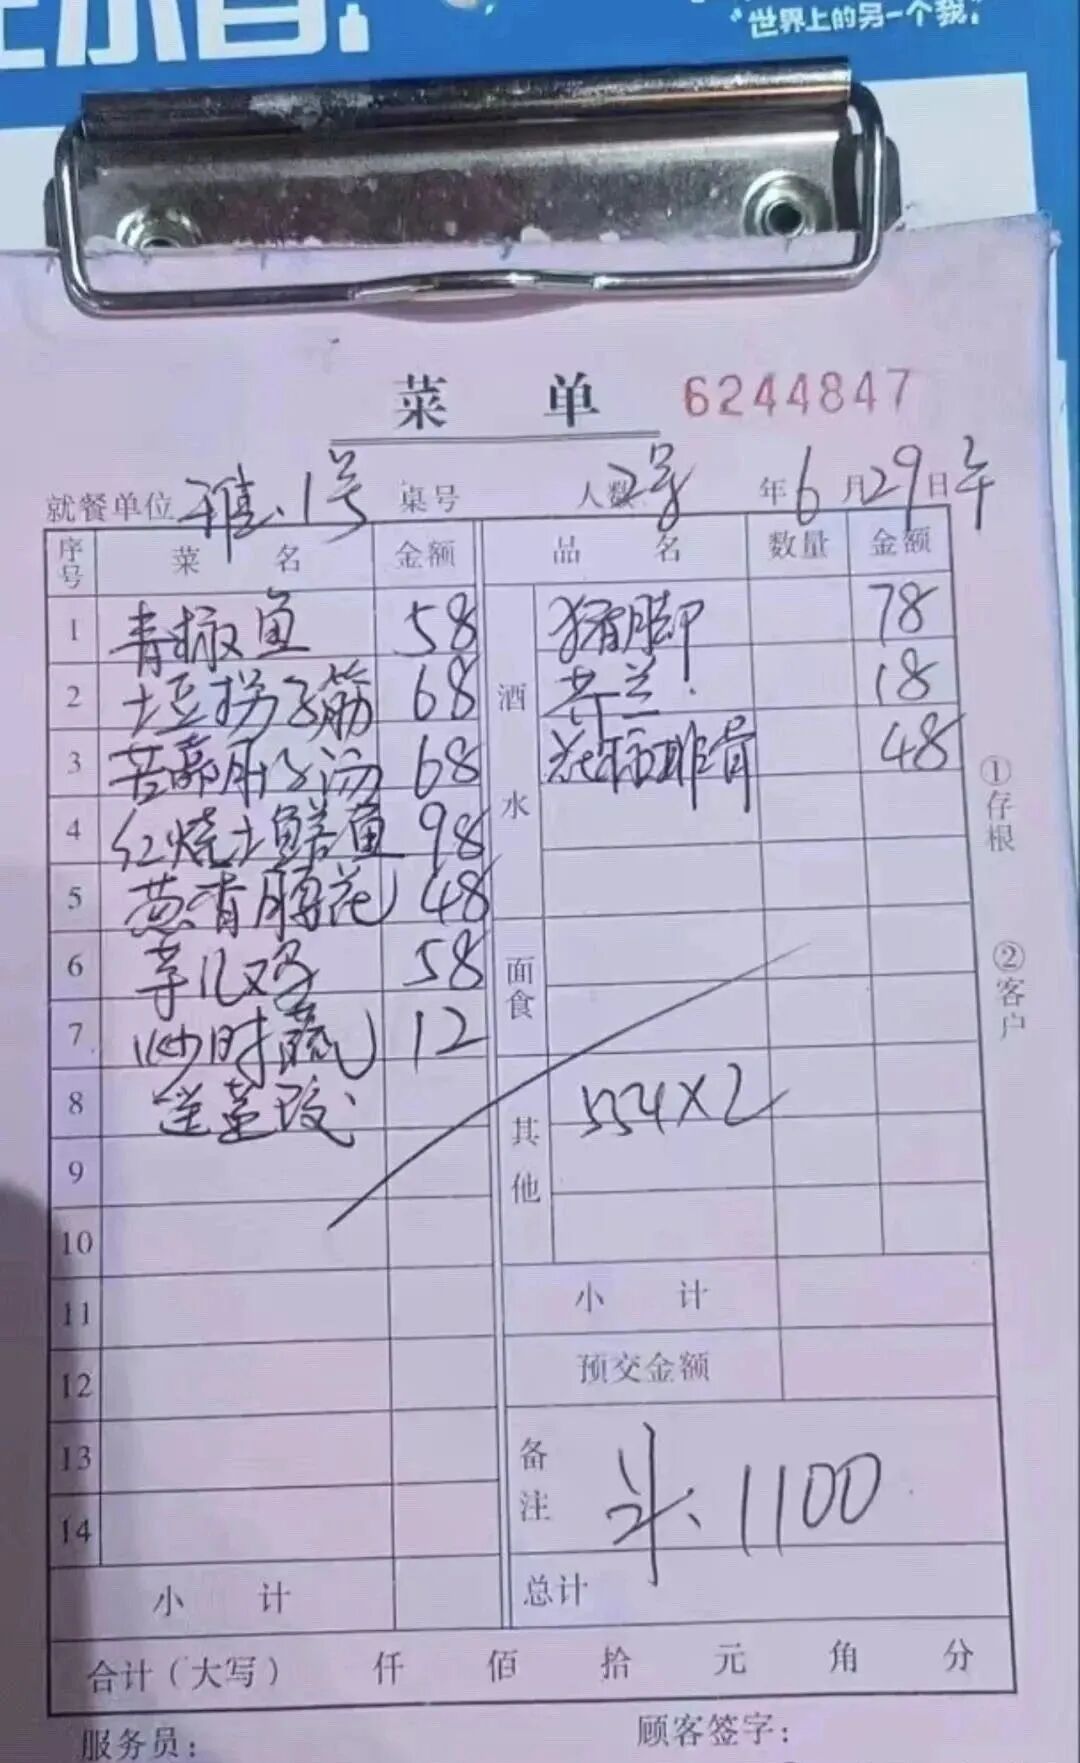 "世界上的另一个我"
菜 单 6244847
就餐单位 雅.1号 桌号 人数 2号 年 6 月 29 日 午
序号 菜 名 金额 品 名 数量 金额
1 青椒鱼 58 酒水 猪脚 78
2 土豆拐子筋 68 芥兰. 18
3 肚子汤 68 排骨 48
4 红烧土鳝鱼 98
5 葱香腰花 48
6 芋儿鸡 58 面食
7 炒时蔬 12
8 其他 554×2
9
10
11 小 计
12 预交金额
13 备注 1100
14
小 计 总计
合计(大写) 仟 佰 拾 元 角 分
服务员: 顾客签字:
①存根
②客户